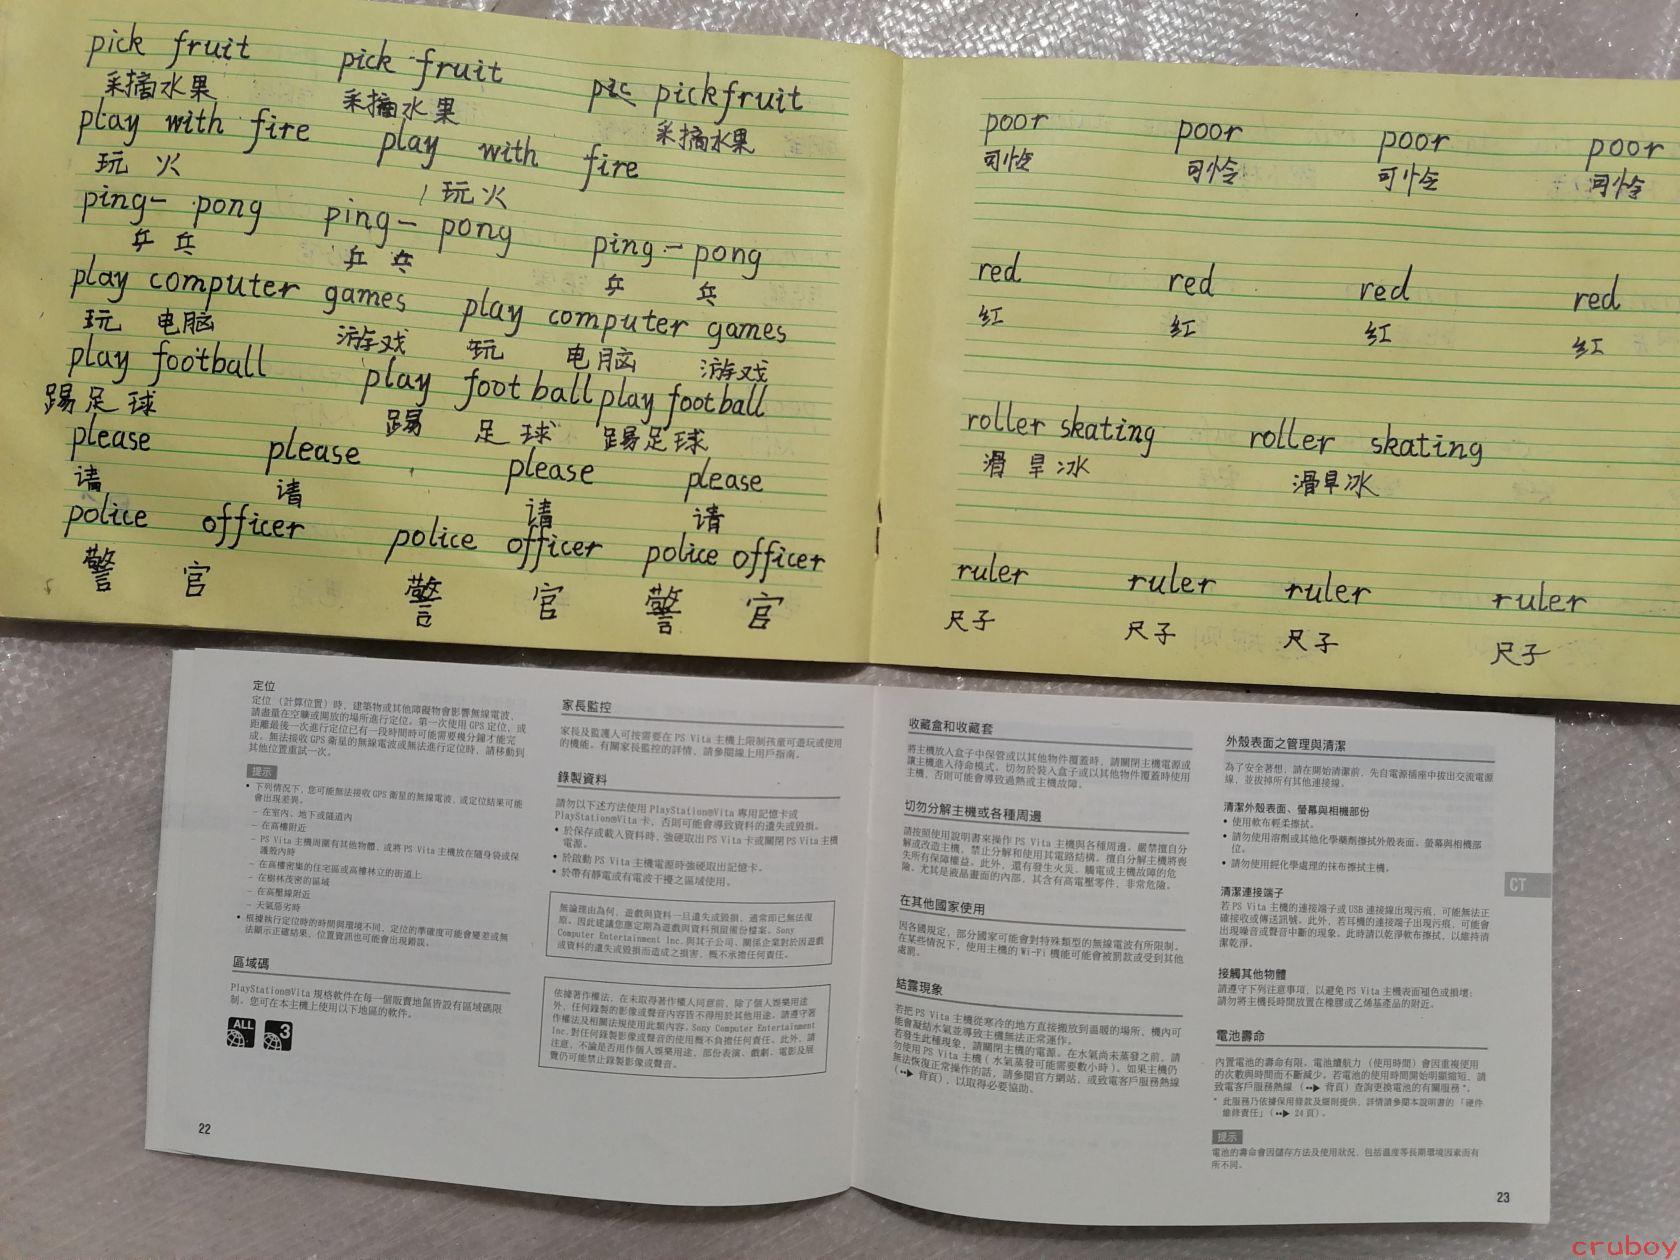 pick fruit pick fruit pic pickfruit
采摘水果 采摘水果 采摘水果
play with fire play with fire
玩 火 玩火
ping- pong ping- pong ping-pong
乒 乓 乒 乓 乒 乓
play computer games play computer games
玩 电脑 游戏 玩 电脑 游戏
play football play foot ball play football
踢足球 踢 足 球 踢足球
please please please please
请 请 请 请
police officer police officer police officer
警 官 警 官 警 官
poor poor poor poor
可怜 可怜 可怜 可怜
red red red red
红 红 红 红
roller skating roller skating
滑旱冰 滑旱冰
ruler ruler ruler ruler
尺子 尺子 尺子 尺子
定位
定位 (計算位置) 時，建築物或其他障礙物會影響無線電波，
請盡量在空曠或開放的場所進行定位。第一次使用 GPS 定位，或
距離最後一次進行定位已有一段時間時可能需要幾分鐘才能完
成。無法接收 GPS 衛星的無線電波或無法進行定位時，請移動到
其他位置重試一次。
提示
• 下列情況下，您可能無法接收 GPS 衛星的無線電波，或定位結果可能
會出現差異。
– 在室內、地下或隧道內
– 在高樓附近
– PS Vita 主機周圍有其他物體，或將 PS Vita 主機放在隨身袋或保
護殼內時
– 在高樓密集的住宅區或高樓林立的街道上
– 在樹林茂密的區域
– 在高壓線附近
– 天氣惡劣時
• 根據執行定位時的時間與環境不同，定位的準確度可能會變差或無
法顯示正確結果，位置資訊也可能會出現錯誤。
區域碼
PlayStation®Vita 規格軟件在每一個販賣地區皆設有區域碼限
制。您可在本主機上使用以下地區的軟件。
ALL 3
22
家長監控
家長及監護人可按需要在 PS Vita 主機上限制孩童可遊玩或使用
的機能。有關家長監控的詳情，請參閱線上用戶指南。
錄製資料
請勿以下述方法使用 PlayStation®Vita 專用記憶卡或
PlayStation®Vita 卡，否則可能會導致資料的遺失或毀損。
• 於保存或載入資料時，強硬取出 PS Vita 卡或關閉 PS Vita 主機
電源。
• 於啟動 PS Vita 主機電源時強硬取出記憶卡。
• 於帶有靜電或有電波干擾之區域使用。
無論理由為何，遊戲與資料一旦遺失或毀損，通常即已無法復
原。因此建議您應定期為遊戲與資料預留備份檔案。Sony
Computer Entertainment Inc.與其子公司、關係企業對於因遊戲
或資料的遺失或毀損而造成之損害，概不承擔任何責任。
依據著作權法，在未取得著作權人同意前，除了個人娛樂用途
外，任何錄製的影像或聲音內容皆不得用於其他用途。請遵守著
作權法及相關法規使用此類內容。Sony Computer Entertainment
Inc.對任何錄製影像或聲音的使用概不負擔任何責任。此外，請
注意，不論是否用作個人娛樂用途，部份表演、戲劇、電影及展
覽仍可能禁止錄製影像或聲音。
收藏盒和收藏套
將主機放入盒子中保管或以其他物件覆蓋時，請關閉主機電源或
讓主機進入待命模式。切勿於裝入盒子或以其他物件覆蓋時使用
主機，否則可能會導致過熱或主機故障。
切勿分解主機或各種周邊
請按照使用說明書來操作 PS Vita 主機與各種周邊。嚴禁擅自分
解或改造主機，禁止分解和使用其電路結構。擅自分解主機將喪
失所有保障權益。此外，還有發生火災、觸電或主機故障的危
險。尤其是液晶畫面的內部，其含有高電壓零件，非常危險。
在其他國家使用
因各國規定，部分國家可能會對特殊類型的無線電波有所限制。
在某些情況下，使用主機的 Wi-Fi 機能可能會被罰款或受到其他
處罰。
結露現象
若把 PS Vita 主機從寒冷的地方直接搬放到溫暖的場所，機內可
能會凝結水氣並導致主機無法正常運作。
若發生此種現象，請關閉主機的電源。在水氣尚未蒸發之前，請
勿使用 PS Vita 主機 (水氣蒸發可能需要數小時)。如果主機仍
無法恢復正常操作的話，請參閱官方網站，或致電客戶服務熱線
(••▶ 背頁)，以取得必要協助。
外殼表面之管理與清潔
為了安全著想，請在開始清潔前，先自電源插座中拔出交流電源
線，並拔掉所有其他連接線。
清潔外殼表面、螢幕與相機部份
• 使用軟布輕柔擦拭。
• 請勿使用溶劑或其他化學藥劑擦拭外殼表面、螢幕與相機部
位。
• 請勿使用經化學處理的抹布擦拭主機。
清潔連接端子
若 PS Vita 主機的連接端子或 USB 連接線出現污痕，可能無法正
確接收或傳送訊號。此外，若耳機的連接端子出現污痕，可能會
出現噪音或聲音中斷的現象。此時請以乾淨軟布擦拭，以維持清
潔乾淨。
接觸其他物體
請遵守下列注意事項，以避免 PS Vita 主機表面褪色或損壞：
請勿將主機長時間放置在橡膠或乙烯基產品的附近。
電池壽命
內置電池的壽命有限。電池續航力 (使用時間) 會因重複使用
的次數與時間而不斷減少。若電池的使用時間開始明顯縮短，請
致電客戶服務熱線 (••▶ 背頁) 查詢更換電池的有關服務*。
* 此服務乃依據保用條款及細則提供，詳情請參閱本說明書的「硬件
維修責任」(••▶ 24 頁)。
提示
電池的壽命會因儲存方法及使用狀況，包括溫度等長期環境因素而有
所不同。
CT
23
cruboy